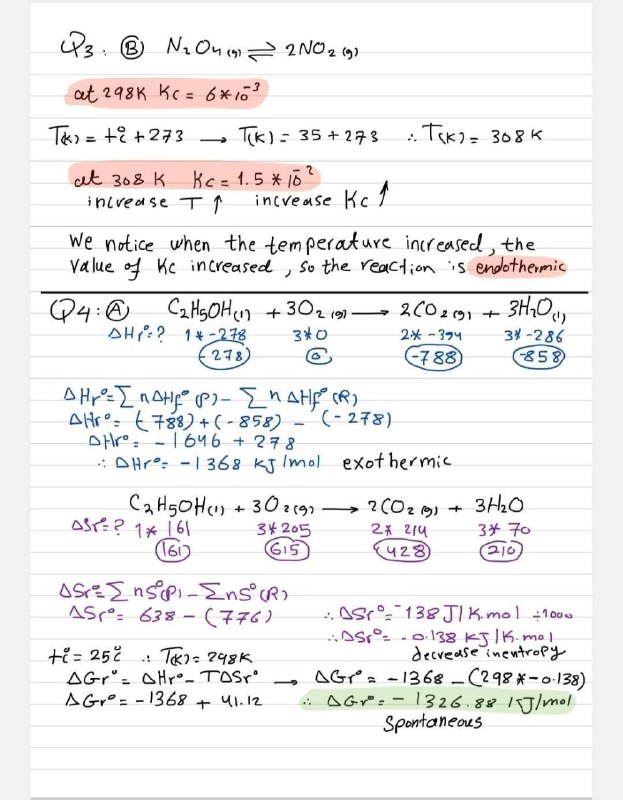 Q3: Ⓑ N₂O₄(g) ⇌ 2NO₂(g)
at 298K Kc = 6*10⁻³
T(K) = t°c + 273 → T(K) = 35 + 273 ∴ T(K) = 308 K
at 308 K Kc = 1.5 * 10⁻²
increase T ↑ increase Kc ↑
We notice when the temperature increased, the
value of Kc increased, so the reaction is endothermic
Q4: Ⓐ C₂H₅OH(l) + 3O₂(g) → 2CO₂(g) + 3H₂O(l)
ΔHr°=? 1*-278 3*0 2*-394 3*-286
-278 0 -788 -858
ΔHr°= Σ nΔHf°(P) - Σ nΔHf°(R)
ΔHr°= (-788) + (-858) - (-278)
ΔHr°= -1646 + 278
∴ ΔHr°= -1368 KJ/mol exothermic
C₂H₅OH(l) + 3O₂(g) → 2CO₂(g) + 3H₂O
ΔSr°=? 1*161 3*205 2*214 3*70
161 615 428 210
ΔSr°= Σ nS°(P) - Σ nS°(R)
ΔSr°= 638 - (776) ∴ ΔSr°= -138 J/K.mol ÷1000
∴ ΔSr°= -0.138 KJ/K.mol
t°c = 25°c ∴ T(K) = 298K decrease in entropy
ΔGr°= ΔHr° - TΔSr° → ΔGr°= -1368 - (298*-0.138)
ΔGr°= -1368 + 41.12 ∴ ΔGr°= -1326.88 KJ/mol
Spontaneous